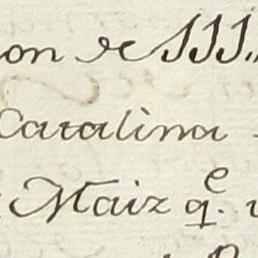 on de III.
Catalina
Maiz q.e